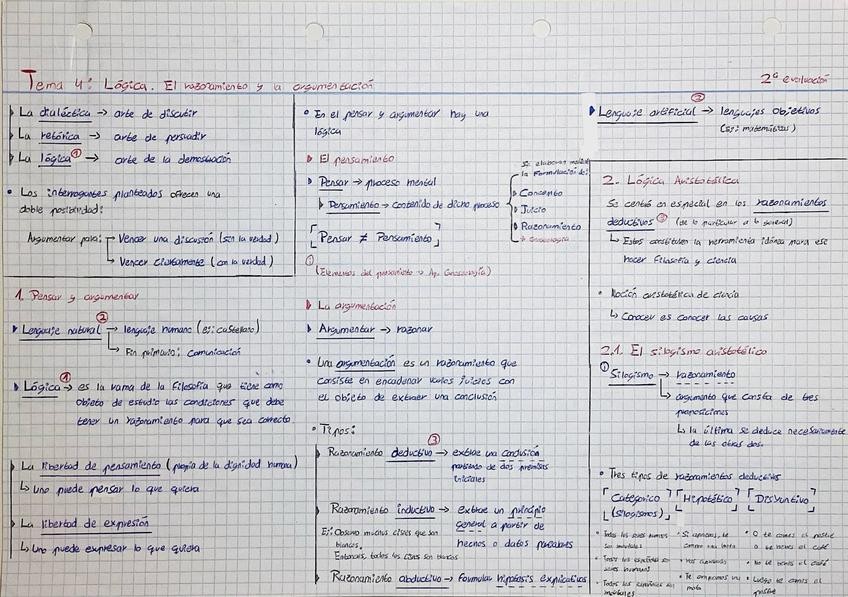 Tema 4: Lógica. El razonamiento y la argumentación
2ª evaluación
La dialéctica → arte de discutir
La retórica → arte de persuadir
La lógica ① → arte de la demostración
• Los interrogantes planteados ofrecen una
doble posibilidad:
Argumentar para: → Vencer una discusión (sin la verdad)
↳ Vencer ciertamente (con la verdad)
1. Pensar y argumentar
②
Lenguaje natural → lenguaje humano (ej: castellano)
↳ Fin primario: comunicación
①
Lógica → es la rama de la filosofía que tiene como
objeto de estudio las condiciones que debe
tener un razonamiento para que sea correcto
La libertad de pensamiento (propia de la dignidad humana)
↳ Uno puede pensar lo que quiera
La libertad de expresión
↳ Uno puede expresar lo que quiera
• En el pensar y argumentar hay una
lógica
El pensamiento
Pensar → proceso mental
Pensamiento → contenido de dicho proceso
la formulación de:
Concepto
Juicio
Razonamiento
Pensar ≠ Pensamiento
①
La argumentación
Argumentar → razonar
• Una argumentación es un razonamiento que
consiste en encadenar varios juicios con
el objeto de extraer una conclusión
• Tipos:
③
Razonamiento deductivo → extrae una conclusión
partiendo de dos premisas
iniciales
Razonamiento inductivo → extrae un principio
general a partir de
hechos o datos
Ej: Observo muchos cisnes que son
blancos.
Entonces, todos los cisnes son blancos
Razonamiento abductivo → formular hipótesis explicativas
②
Lenguaje artificial → lenguajes objetivos
(ej: matemáticas)
2. Lógica Aristotélica
Se centró en especial en los razonamientos
deductivos ③ (de lo particular a lo general)
↳ Estos constituyen la herramienta idónea para ese
hacer filosofía y ciencia
• Noción aristotélica de ciencia
↳ Conocer es conocer las causas
2.1. El silogismo aristotélico
①
Silogismo → razonamiento
↳ argumento que consta de tres
proposiciones
↳ la última se deduce necesariamente
de las otras dos.
• Tres tipos de razonamientos deductivos
Categórico Hipotético Disyuntivo
(silogismos)